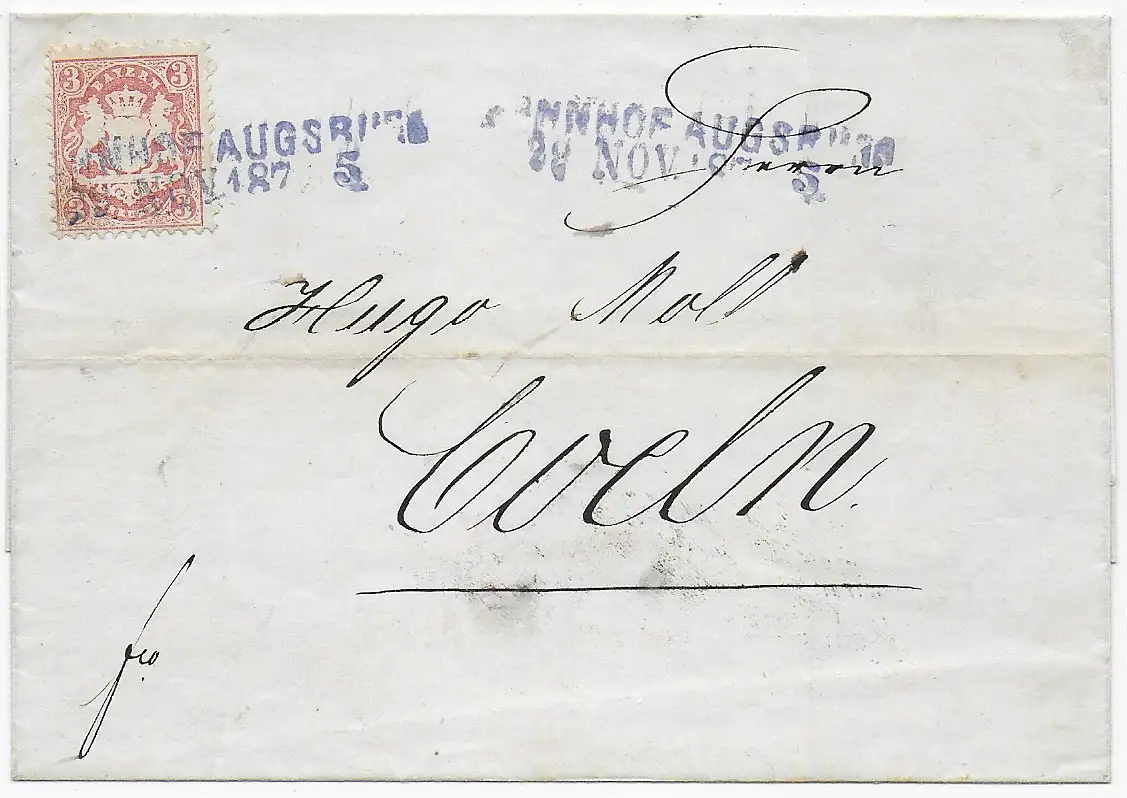 3 BAYERN 3
BAHNHOF AUGSBURG
NOV. 187 5
3 3
BAHNHOF AUGSBURG
NOV. 187 5
Herrn
Hugo Moll
Coeln.
fro